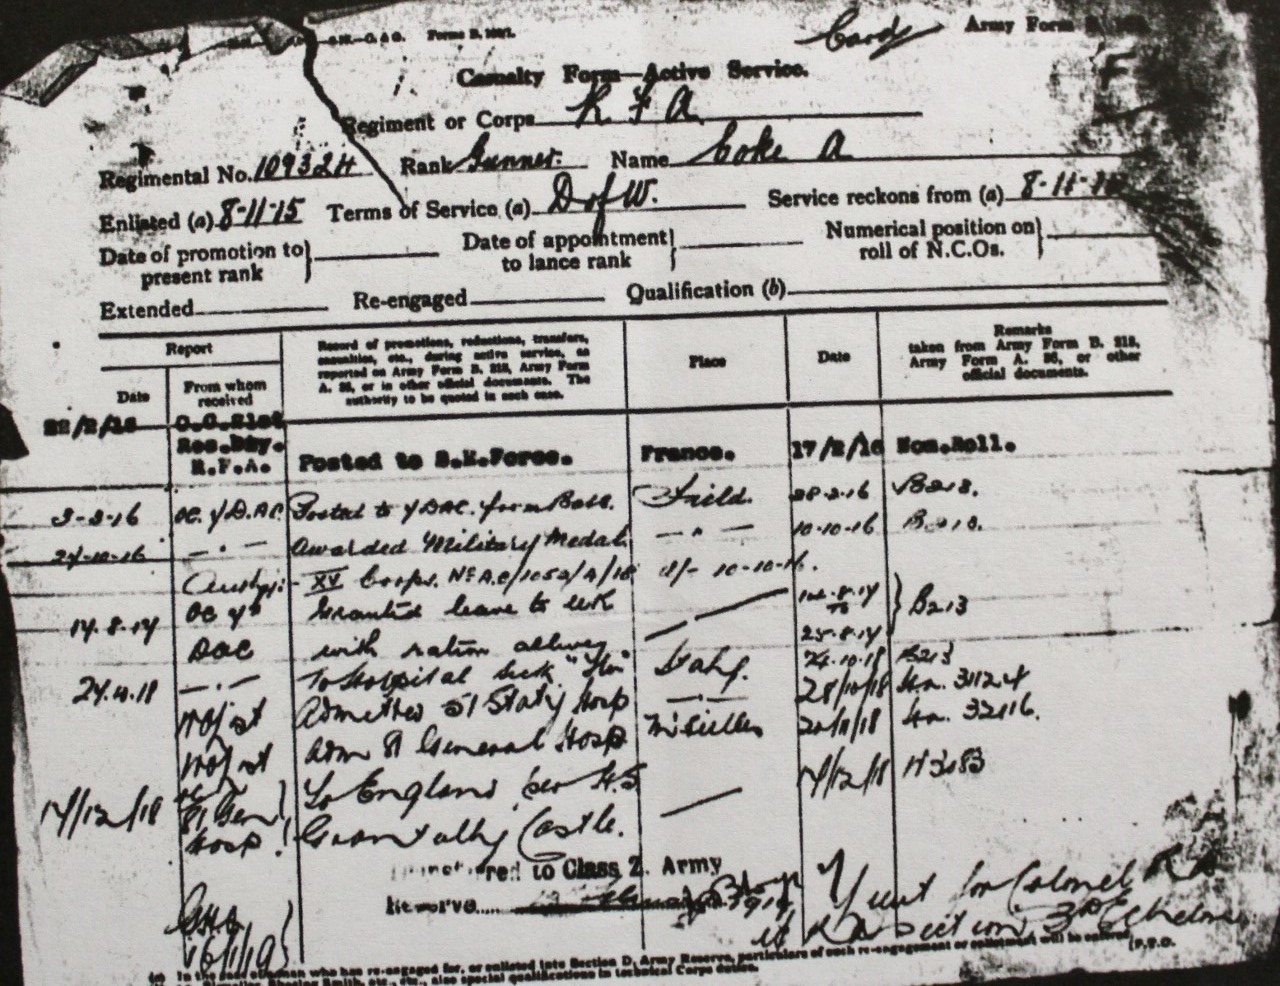 Forms B. 103/1.
Army Form B.
Casualty Form—Active Service.
Regiment or Corps R F A
Regimental No. 109324 Rank Gunner. Name Coke A
Enlisted (a) 8-11-15 Terms of Service (a) D of W. Service reckons from (a) 8-11-15
Date of promotion to present rank } Date of appointment to lance rank } Numerical position on roll of N.C.Os. }
Extended Re-engaged Qualification (b)
Report
Date
From whom received
Record of promotions, reductions, transfers, casualties, etc., during active service, as reported on Army Form B. 213, Army Form A. 36, or in other official documents. The authority to be quoted in each case.
Place
Date
Remarks taken from Army Form B. 213, Army Form A. 36, or other official documents.
22/2/16 O.C. 21st Res. Bty. R.F.A. Posted to B.E.Force. France. 17/2/16 Nom.Roll.
3-3-16 OC Y DAC. Posted to Y DAC. from Base. Field. 28-2-16 B213.
24-10-16 - " - Awarded Military Medal - " - 10-10-16 B213.
Authy:- XV Corps. No A.C/1052/A/18 d/- 10-10-16.
14.8.17 OC Y DAC Granted leave to UK with ration allwce 14.8.17 to 25.8.17 } B213
- " - To Hospital Sick Italy. 24.10.18 B213
Admitted 51 Staty Hosp - " - 28/10/18 31124
Adm 81 General Hosp 20/11/18 32116.
14/12/18 81 Gen Hosp } To England per H.S Grantully Castle. 14/12/18 H3183
Transferred to Class Z. Army
Reserve
16/1/19
for Colonel RA
RA Section 3rd Echelon
(P.T.O.
(a) In the case of a man who has re-engaged for, or enlisted into Section D, Army Reserve, particulars of such re-engagement or enlistment will be entered.
Shoeing Smith, etc., etc., also special qualifications in technical Corps duties.